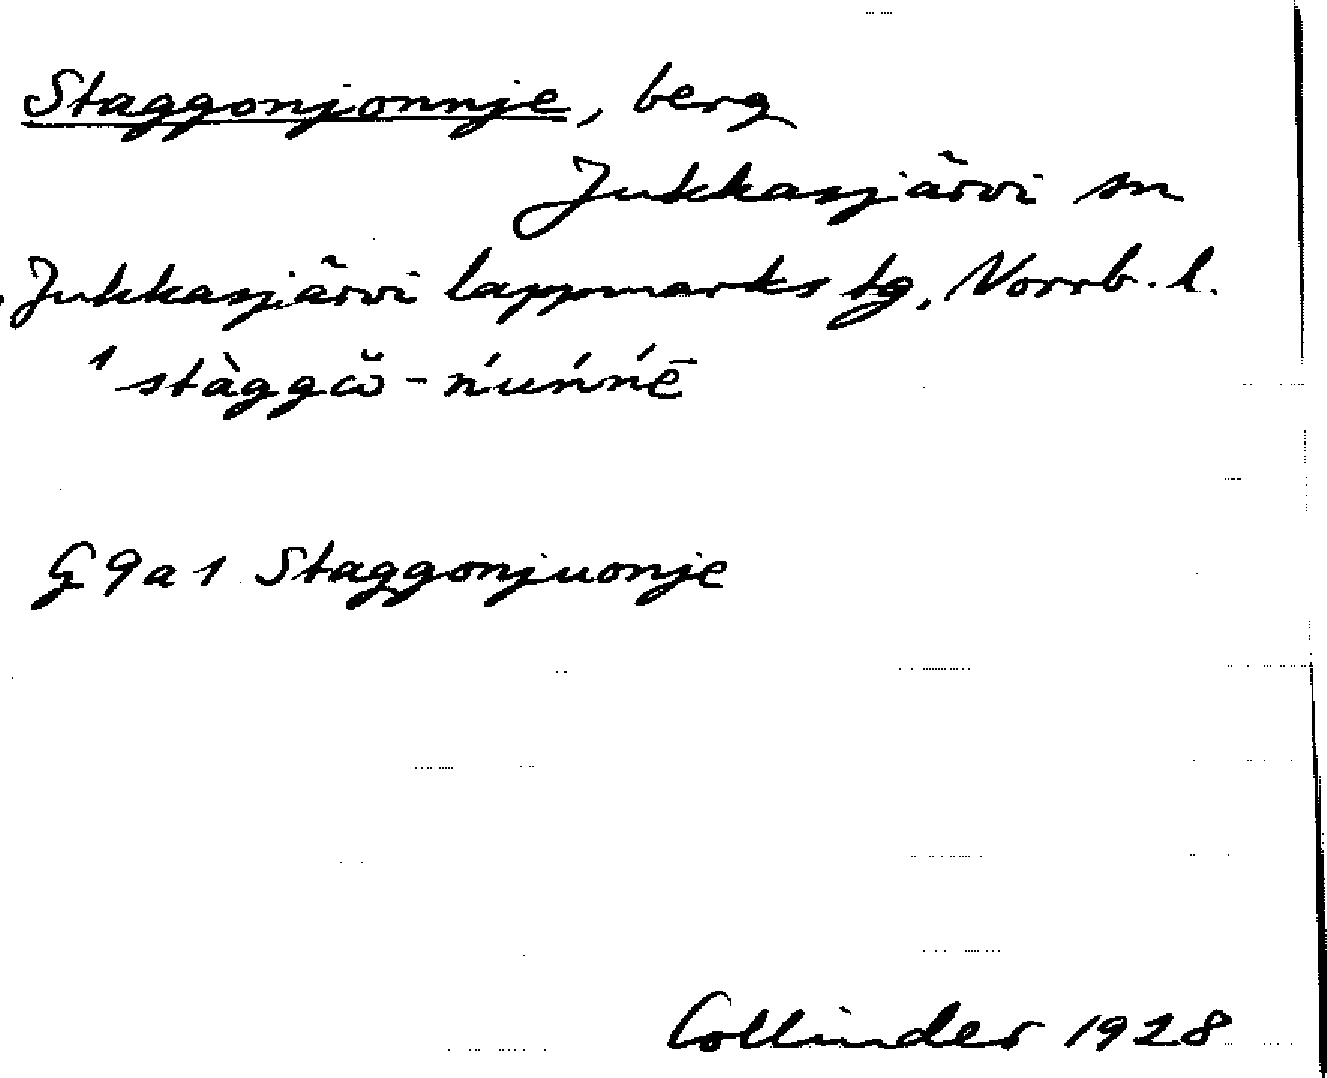 Staggonjonnje, berg
Jukkasjärvi sn
Jukkasjärvi lappmarks tg, Norrb. l.
stàggŏ̀ - ńuńńē
G 9 a 1 Staggonjuonje
Collinder 1928